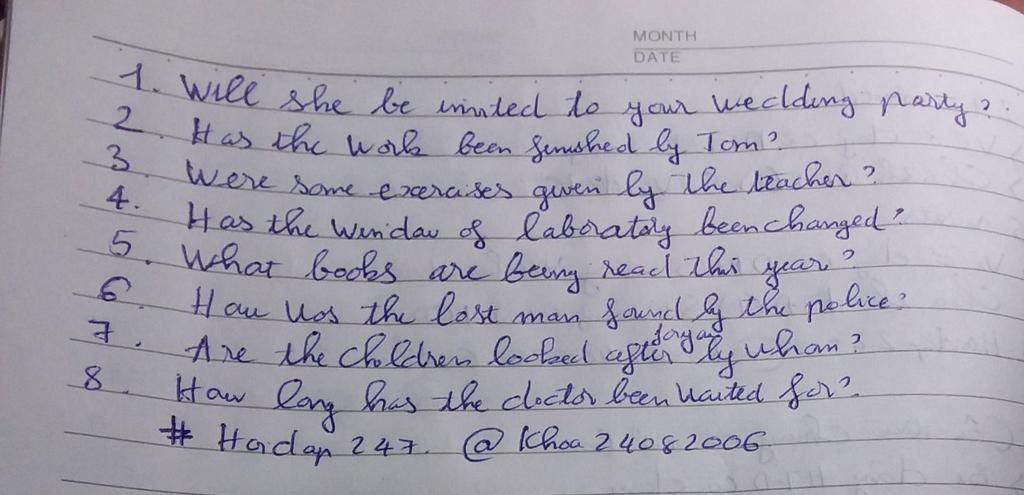 MONTH
DATE
1. Will she be invited to your wedding party?
2. Has the work been finished by Tom?
3. Were some exercises given by the teacher?
4. Has the window of laboratory been changed?
5. What books are being read this year?
6. How was the lost man found by the police?
7. Are the children looked after for you by whom?
8. How long has the doctor been waited for?
# Hoidap 247. @ Khoa 24082006